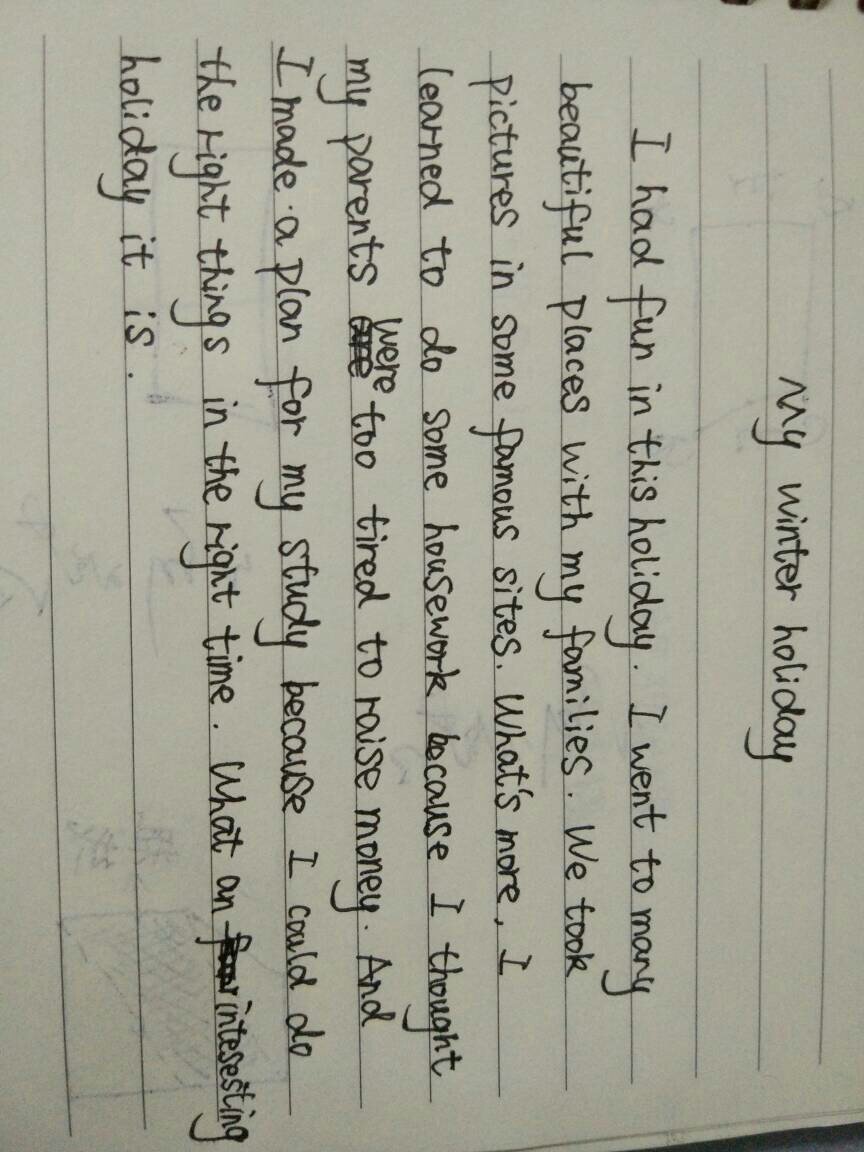 My winter holiday
I had fun in this holiday. I went to many
beautiful places with my families. We took
pictures in some famous sites. What's more, I
learned to do some housework because I thought
my parents were too tired to raise money. And
I made a plan for my study because I could do
the right things in the right time. What an intesesting
holiday it is.